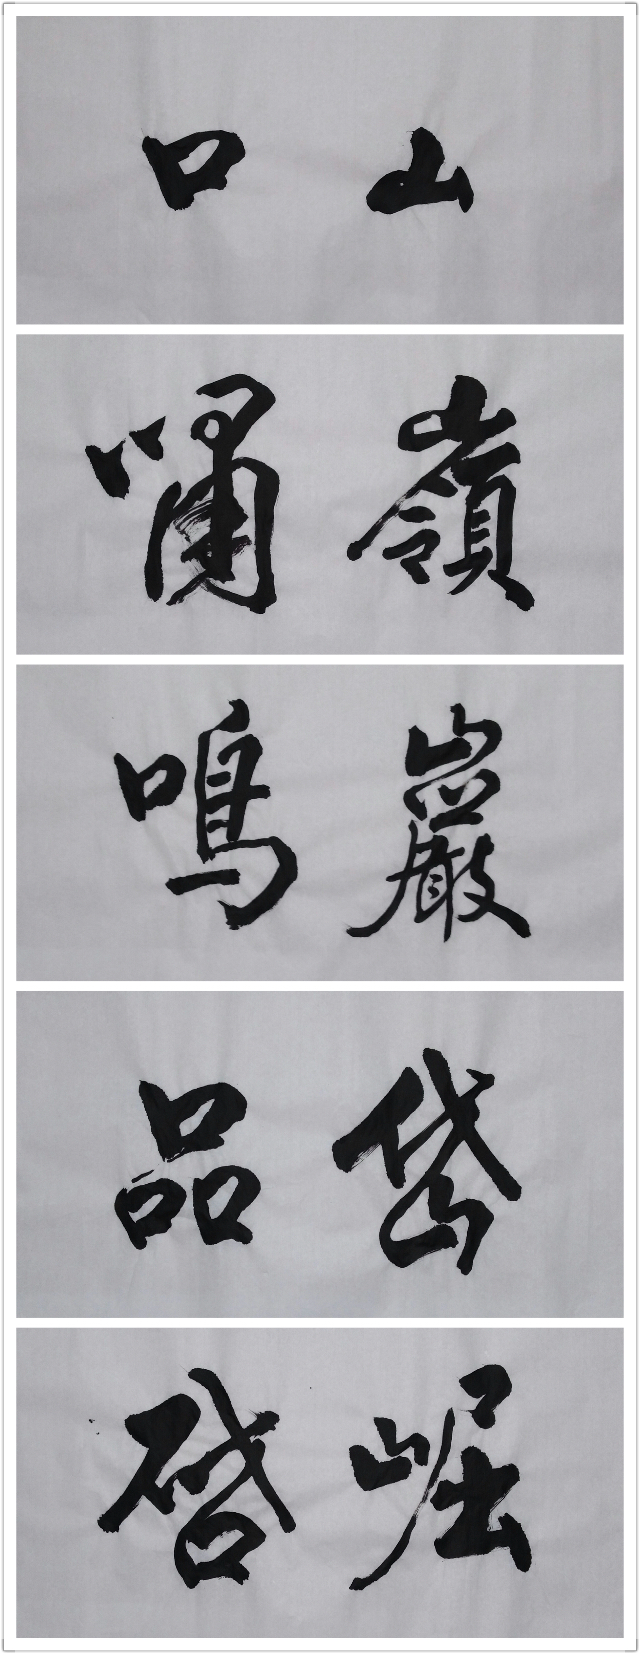 山口
嶺嘯
巖鳴
岱品
崛啓